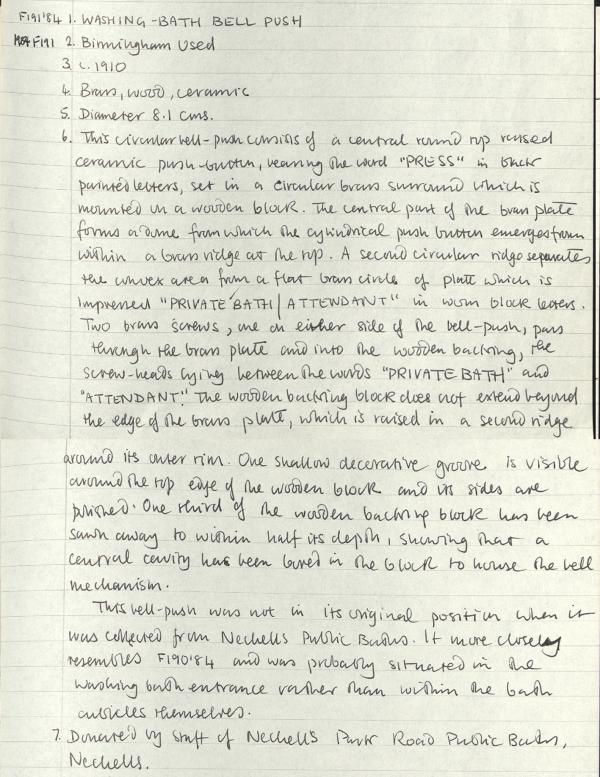 F191'84 1. WASHING-BATH BELL PUSH
F191 2. Birmingham Used
3. c.1910
4. Brass, wood, ceramic
5. Diameter 8.1 cms.
6. This circular bell-push consists of a central round top raised
ceramic push-button, bearing the word "PRESS" in black
painted letters, set in a circular brass surround which is
mounted on a wooden block. The central part of the brass plate
forms a dome from which the cylindrical push button emerges from
within a brass ridge at the top. A second circular ridge separates
the convex area from a flat brass circle of plate which is
impressed "PRIVATE BATH / ATTENDANT" in worn block letters.
Two brass screws, one on either side of the bell-push, pass
through the brass plate and into the wooden backing, the
screw-heads lying between the words "PRIVATE BATH" and
"ATTENDANT". The wooden backing block does not extend beyond
the edge of the brass plate, which is raised in a second ridge
around its outer rim. One shallow decorative groove is visible
around the top edge of the wooden block and its sides are
polished. One third of the wooden backing block has been
sawn away to within half its depth, showing that a
central cavity has been bored in the block to house the bell
mechanism.
This bell-push was not in its original position when it
was collected from Nechells Public Baths. It more closely
resembles F190'84 and was probably situated in the
washing bath entrance rather than within the bath
cubicles themselves.
7. Donated by staff of Nechells Park Road Public Baths,
Nechells.